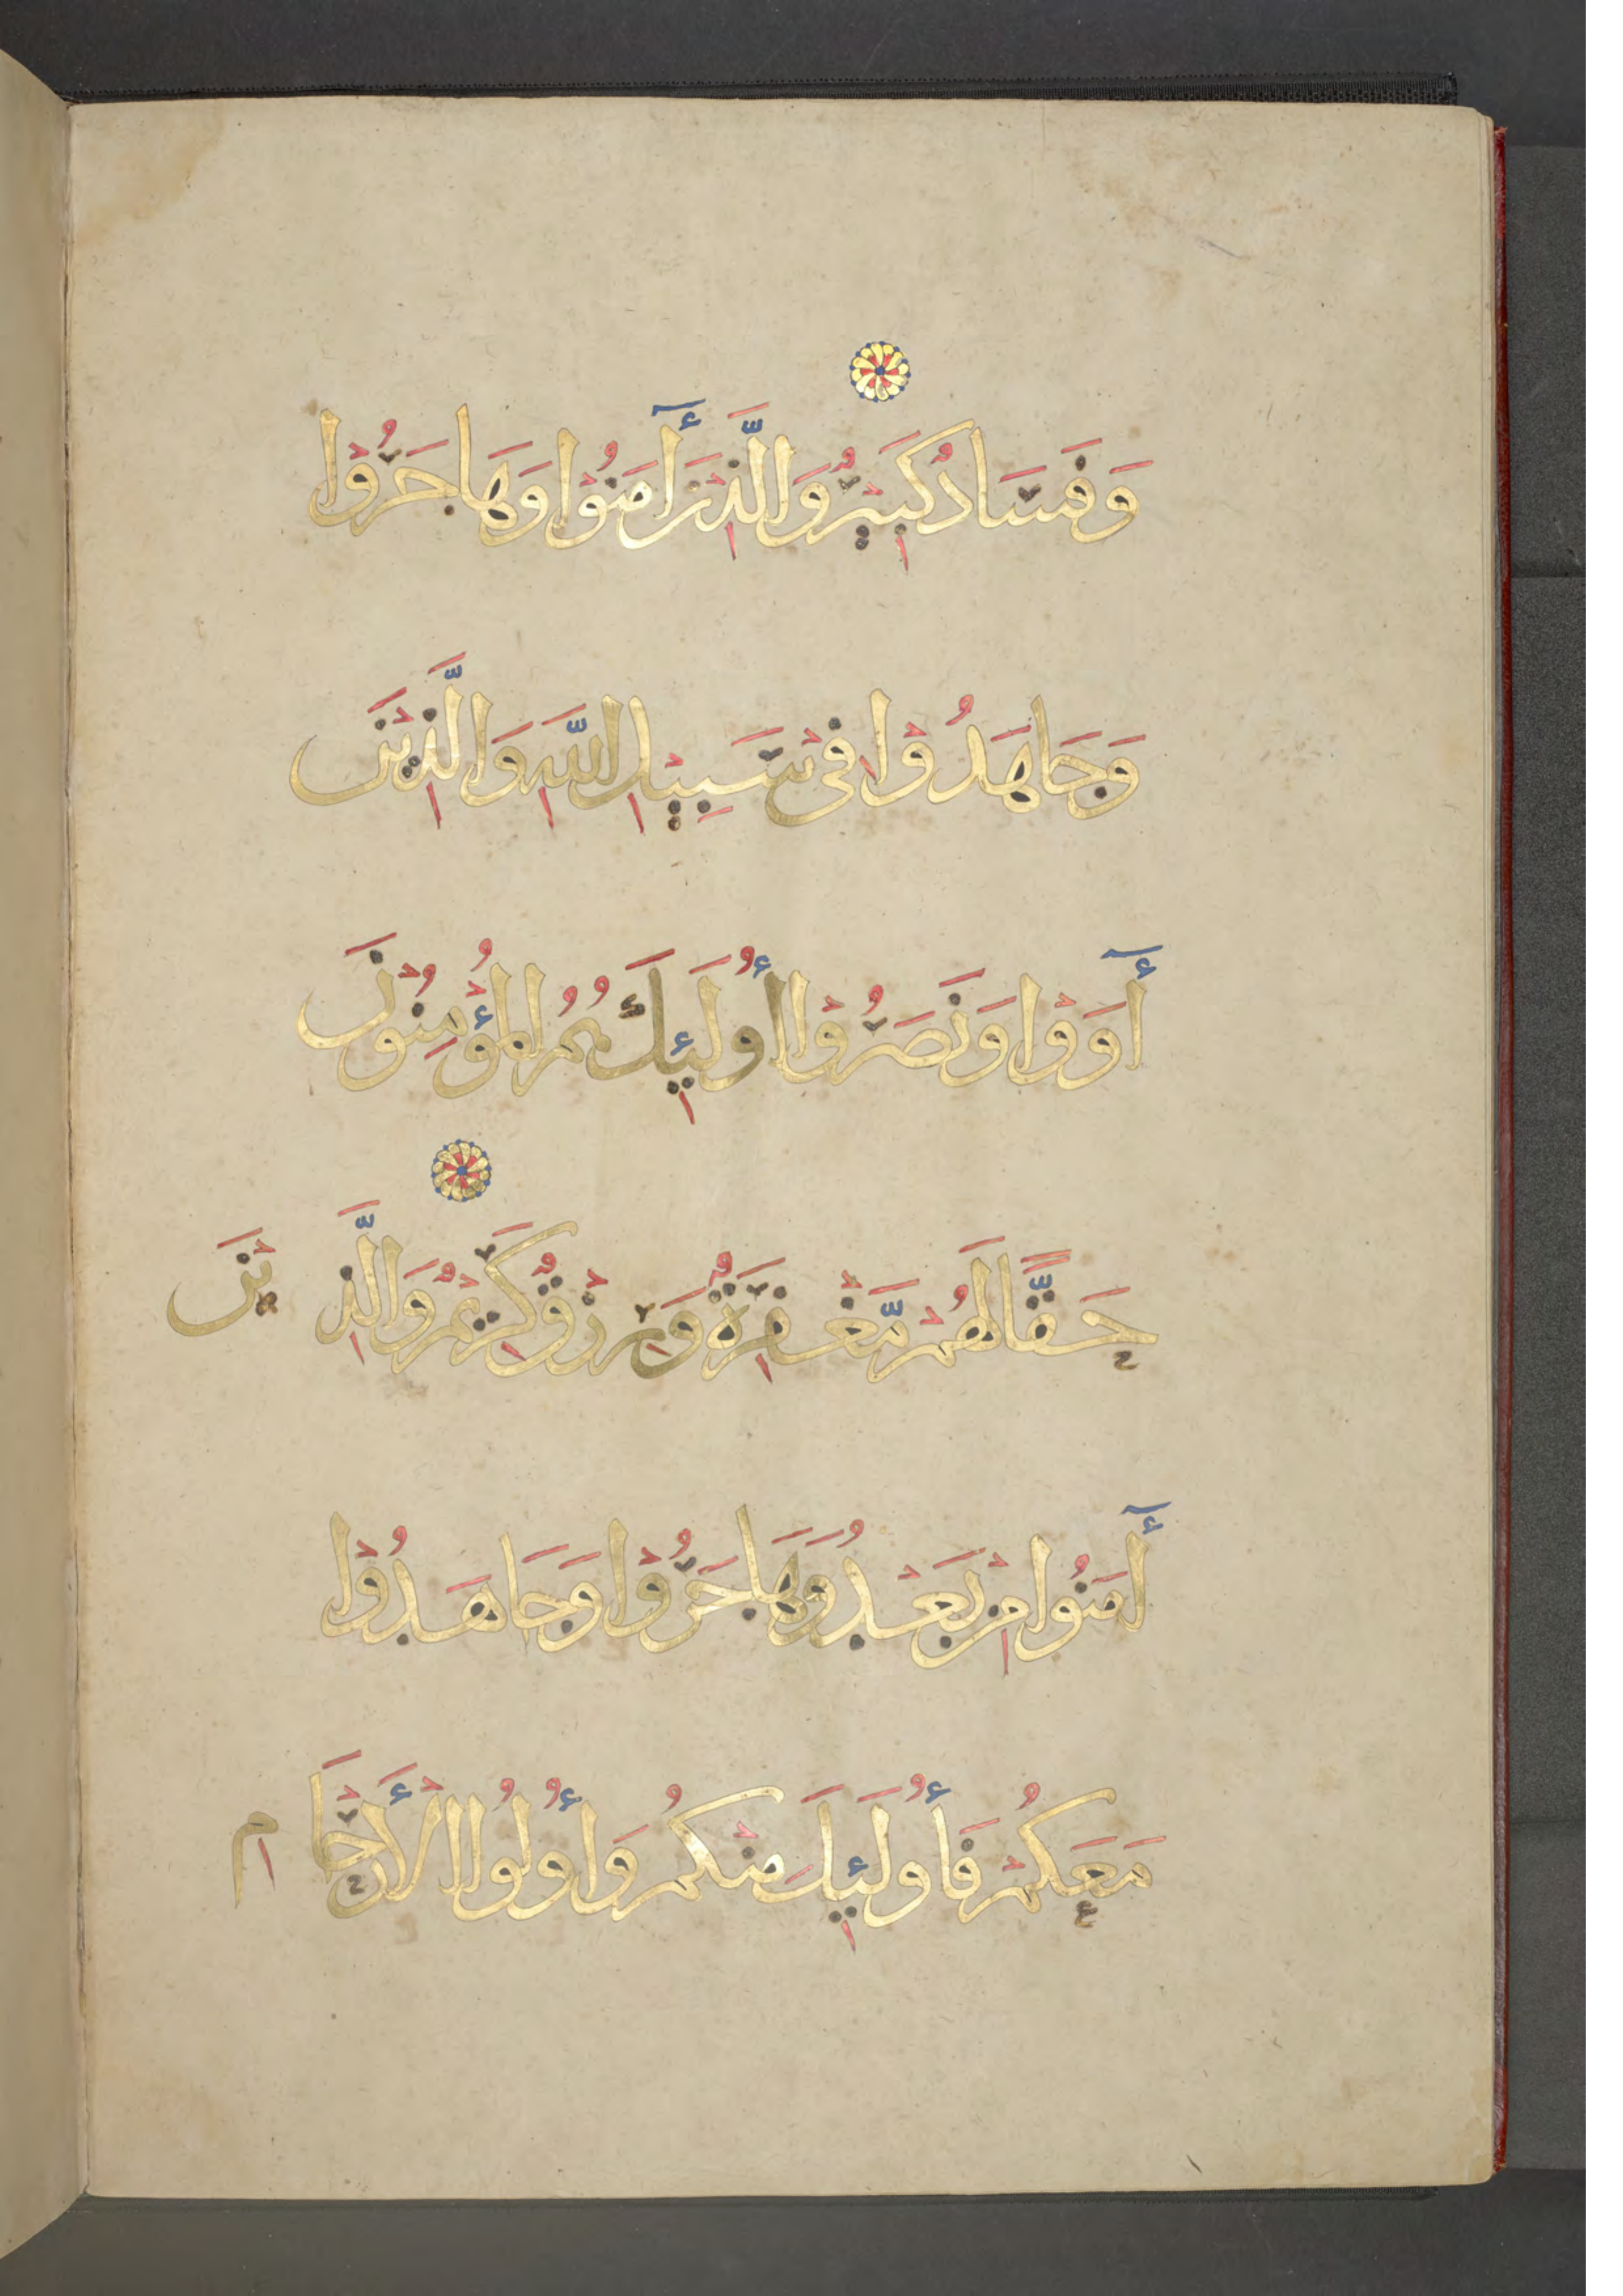 وَفَسَادٌ كَبِيرٌ وَالَّذِينَ أٰمَنُوْا وَهَاجَرُوْا
وَجَاهَدُوْا فِيْ سَبِيْلِ اللَّهِ وَالَّذِيْنَ
أٰوَوْا وَنَصَرُوْا أُولَئِكَ هُمُ الْمُؤْمِنُوْنَ
حَقًّا لَهُمْ مَّغْفِرَةٌ وَرِزْقٌ كَرِيْمٌ وَالَّذِيْنَ
أٰمَنُوا مِنْ بَعْدُ وَهَاجَرُوْا وَجَاهَدُوْا
مَعَكُمْ فَأُولَئِكَ مِنْكُمْ وَأُولُوا الْأَرْحَامِ